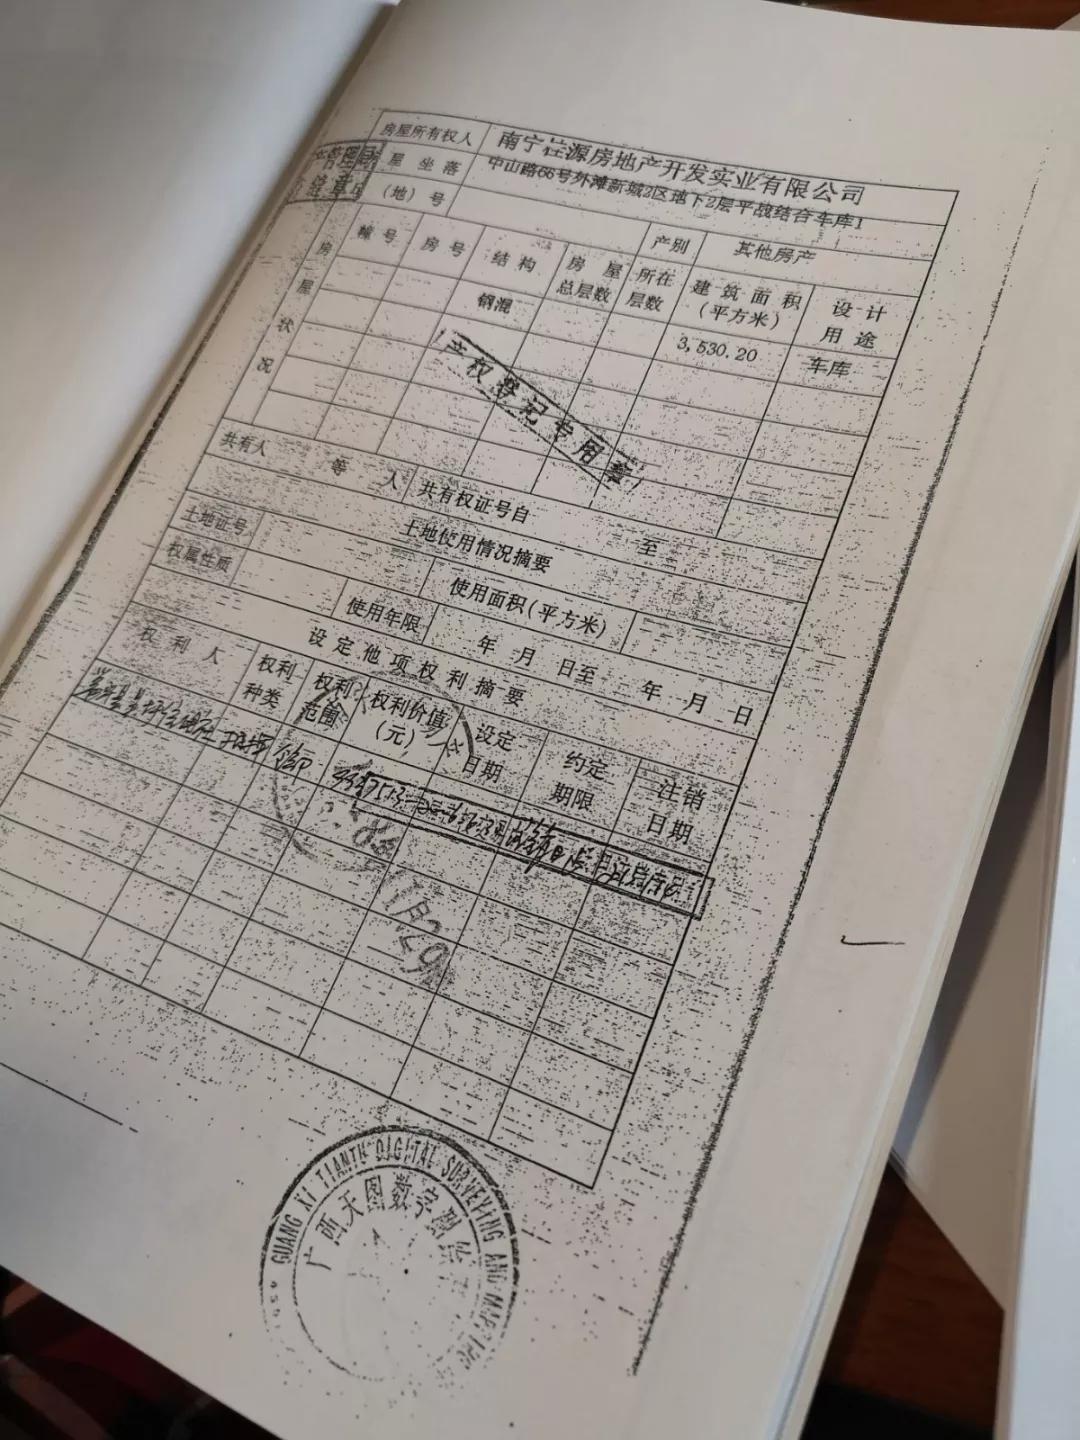 房屋所有权人 南宁桂源房地产开发实业有限公司
屋坐落 中山路66号外滩新城2区地下2层平战结合车库1
(地)号
产别 其他房产
房屋状况
幢号 房号 结构 房屋总层数 所在层数 建筑面积(平方米) 设计用途
钢混 3,530.20 车库
产权登记专用章
共有人 等 人 共有权证号自 至
土地使用情况摘要
土地证号 使用面积(平方米)
权属性质 使用年限 年 月 日至 年 月 日
设定他项权利摘要
权利人 权利种类 权利范围 权利价值(元) 设定日期 约定期限 注销日期
GUANG XI TIANTU DIGITAL SURVEYING AND
广西天图数字